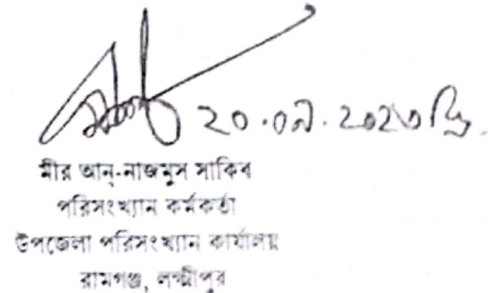 ২০.০৯.২০২৩ খ্রি.
মীর আন্-নাজমুস সাকিব
পরিসংখ্যান কর্মকর্তা
উপজেলা পরিসংখ্যান কার্যালয়
রামগঞ্জ, লক্ষ্মীপুর